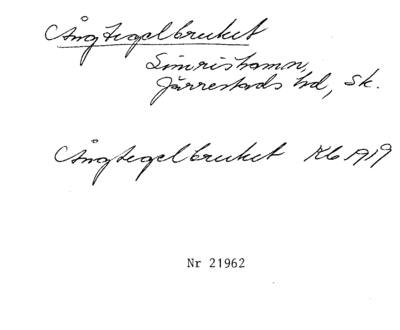 Ångtegelbruket
Simrishamn,
Järrestads hd, Sk.
Ångtegelbruket Kb 1919
Nr 21962